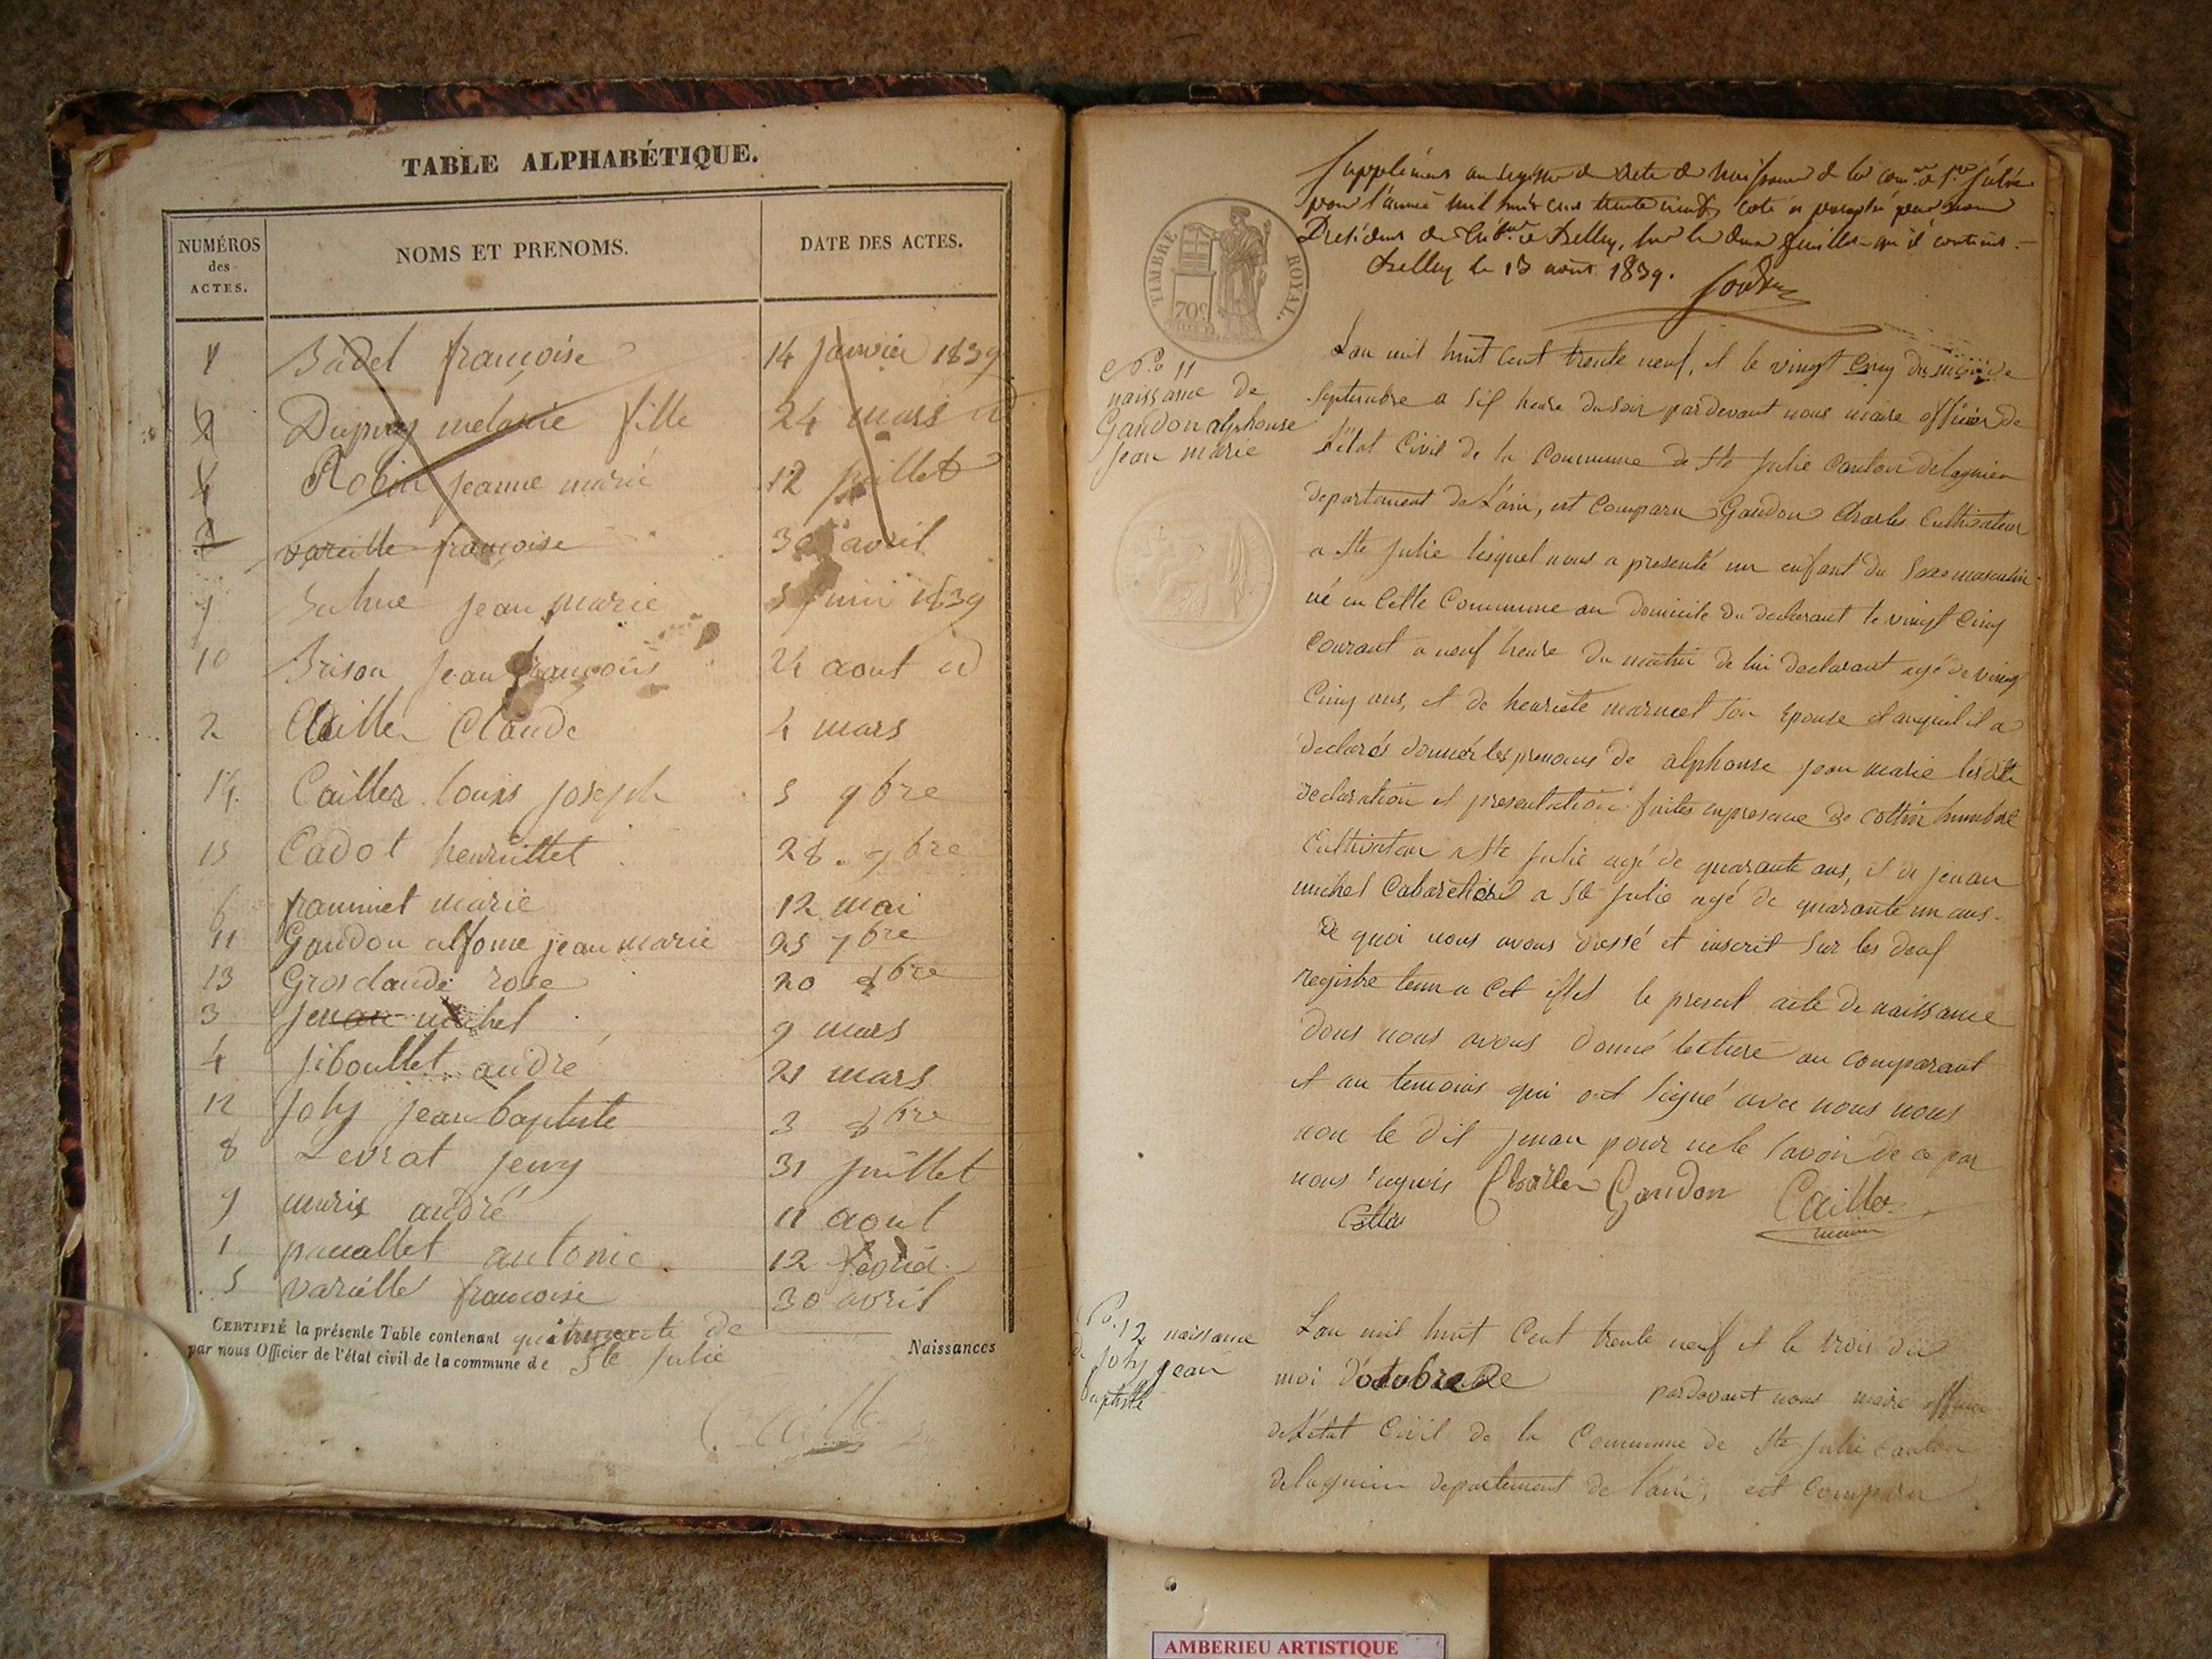 TABLE ALPHABÉTIQUE.
NUMÉROS des ACTES. NOMS ET PRENOMS. DATE DES ACTES.
1 Badel francoise 14 janvier 1839
2 Dupuy melanie fille 24 mars id
4 Robin jeanne marie 12 juillet
vareille francoise 30 avril
7 jean marie 5 juin 1839
10 Brison jean francois 24 aout id
2 Cailler Claude 4 mars
14 Cailler louis joseph 5 9bre
15 Cadot henriettet 28. 9bre
6 marie 12 mai
11 Gaudon alfonse jean marie 25 7bre
13 Grosclaude rose 20 8bre
3 jenan michel 9 mars
4 jiboullet andré 21 mars
12 Joly jean baptiste 3 8bre
8 Levrat jeny 31 juillet
9 andré 11 aout
1 antonie 12
5 vareille francoise 30 avril
CERTIFIÉ la présente Table contenant de Naissances
par nous Officier de l'état civil de la commune de Ste Julie
Caille
TIMBRE ROYAL.
70c
Supplément au registre de acte de naissance de la comne de Ste Julie
pour l'année mil huit cent trente neuf, coté et paraphé par nous
Président du de Belley, sur les deux feuilles qu'il contient.
Belley le 13 août 1839.
No 11
naissance de
Gaudon alphonse
jean marie
Lan mil huit Cent trente neuf, et le vingt Cinq du mois de
Septembre a Sif heure du soir pardevant nous maire officier de
l'état Civil de la Commune de Ste Julie Canton delagnieu
departement de L'ain, est Comparu Gaudon Charles Cultivateur
a Ste Julie lequel nous a presenté un enfant du Sexe masculin
né en Cette Commune au domicile du declarant le vingt Cinq
Courant a neuf heure du matin de lui declarant agé de vingt
Cinq ans, et de henriete marmet son epouse et auquel il a
declarés donner les prenoms de alphonse jean marie les dite
declaration et presentation faites en presence de Cottin humbert
Cultivateur a Ste Julie agé de quarante ans, et de jenan
michel Cabaretier a Ste Julie agé de quarante un ans.
De quoi nous avons dressé et inscrit Sur les deuf
registre tenu a Cet effet le present acte de naissance
dons nous avons Donné lecture au comparant
et au temoins qui ont Signé avec nous nous
non le dit jenan pour ne le Savoir de ce par
nous requis Charles Gaudon Cailler
Cottin maire
No. 12 naissance
de Joly jean
baptiste
Lan mil huit Cent trente neuf et le trois du
moi d'octobre pardevant nous maire officier
de L'etat Civil de la Commune de Ste Julie canton
delagnieu departement de l'ain, est Comparu
AMBERIEU ARTISTIQUE